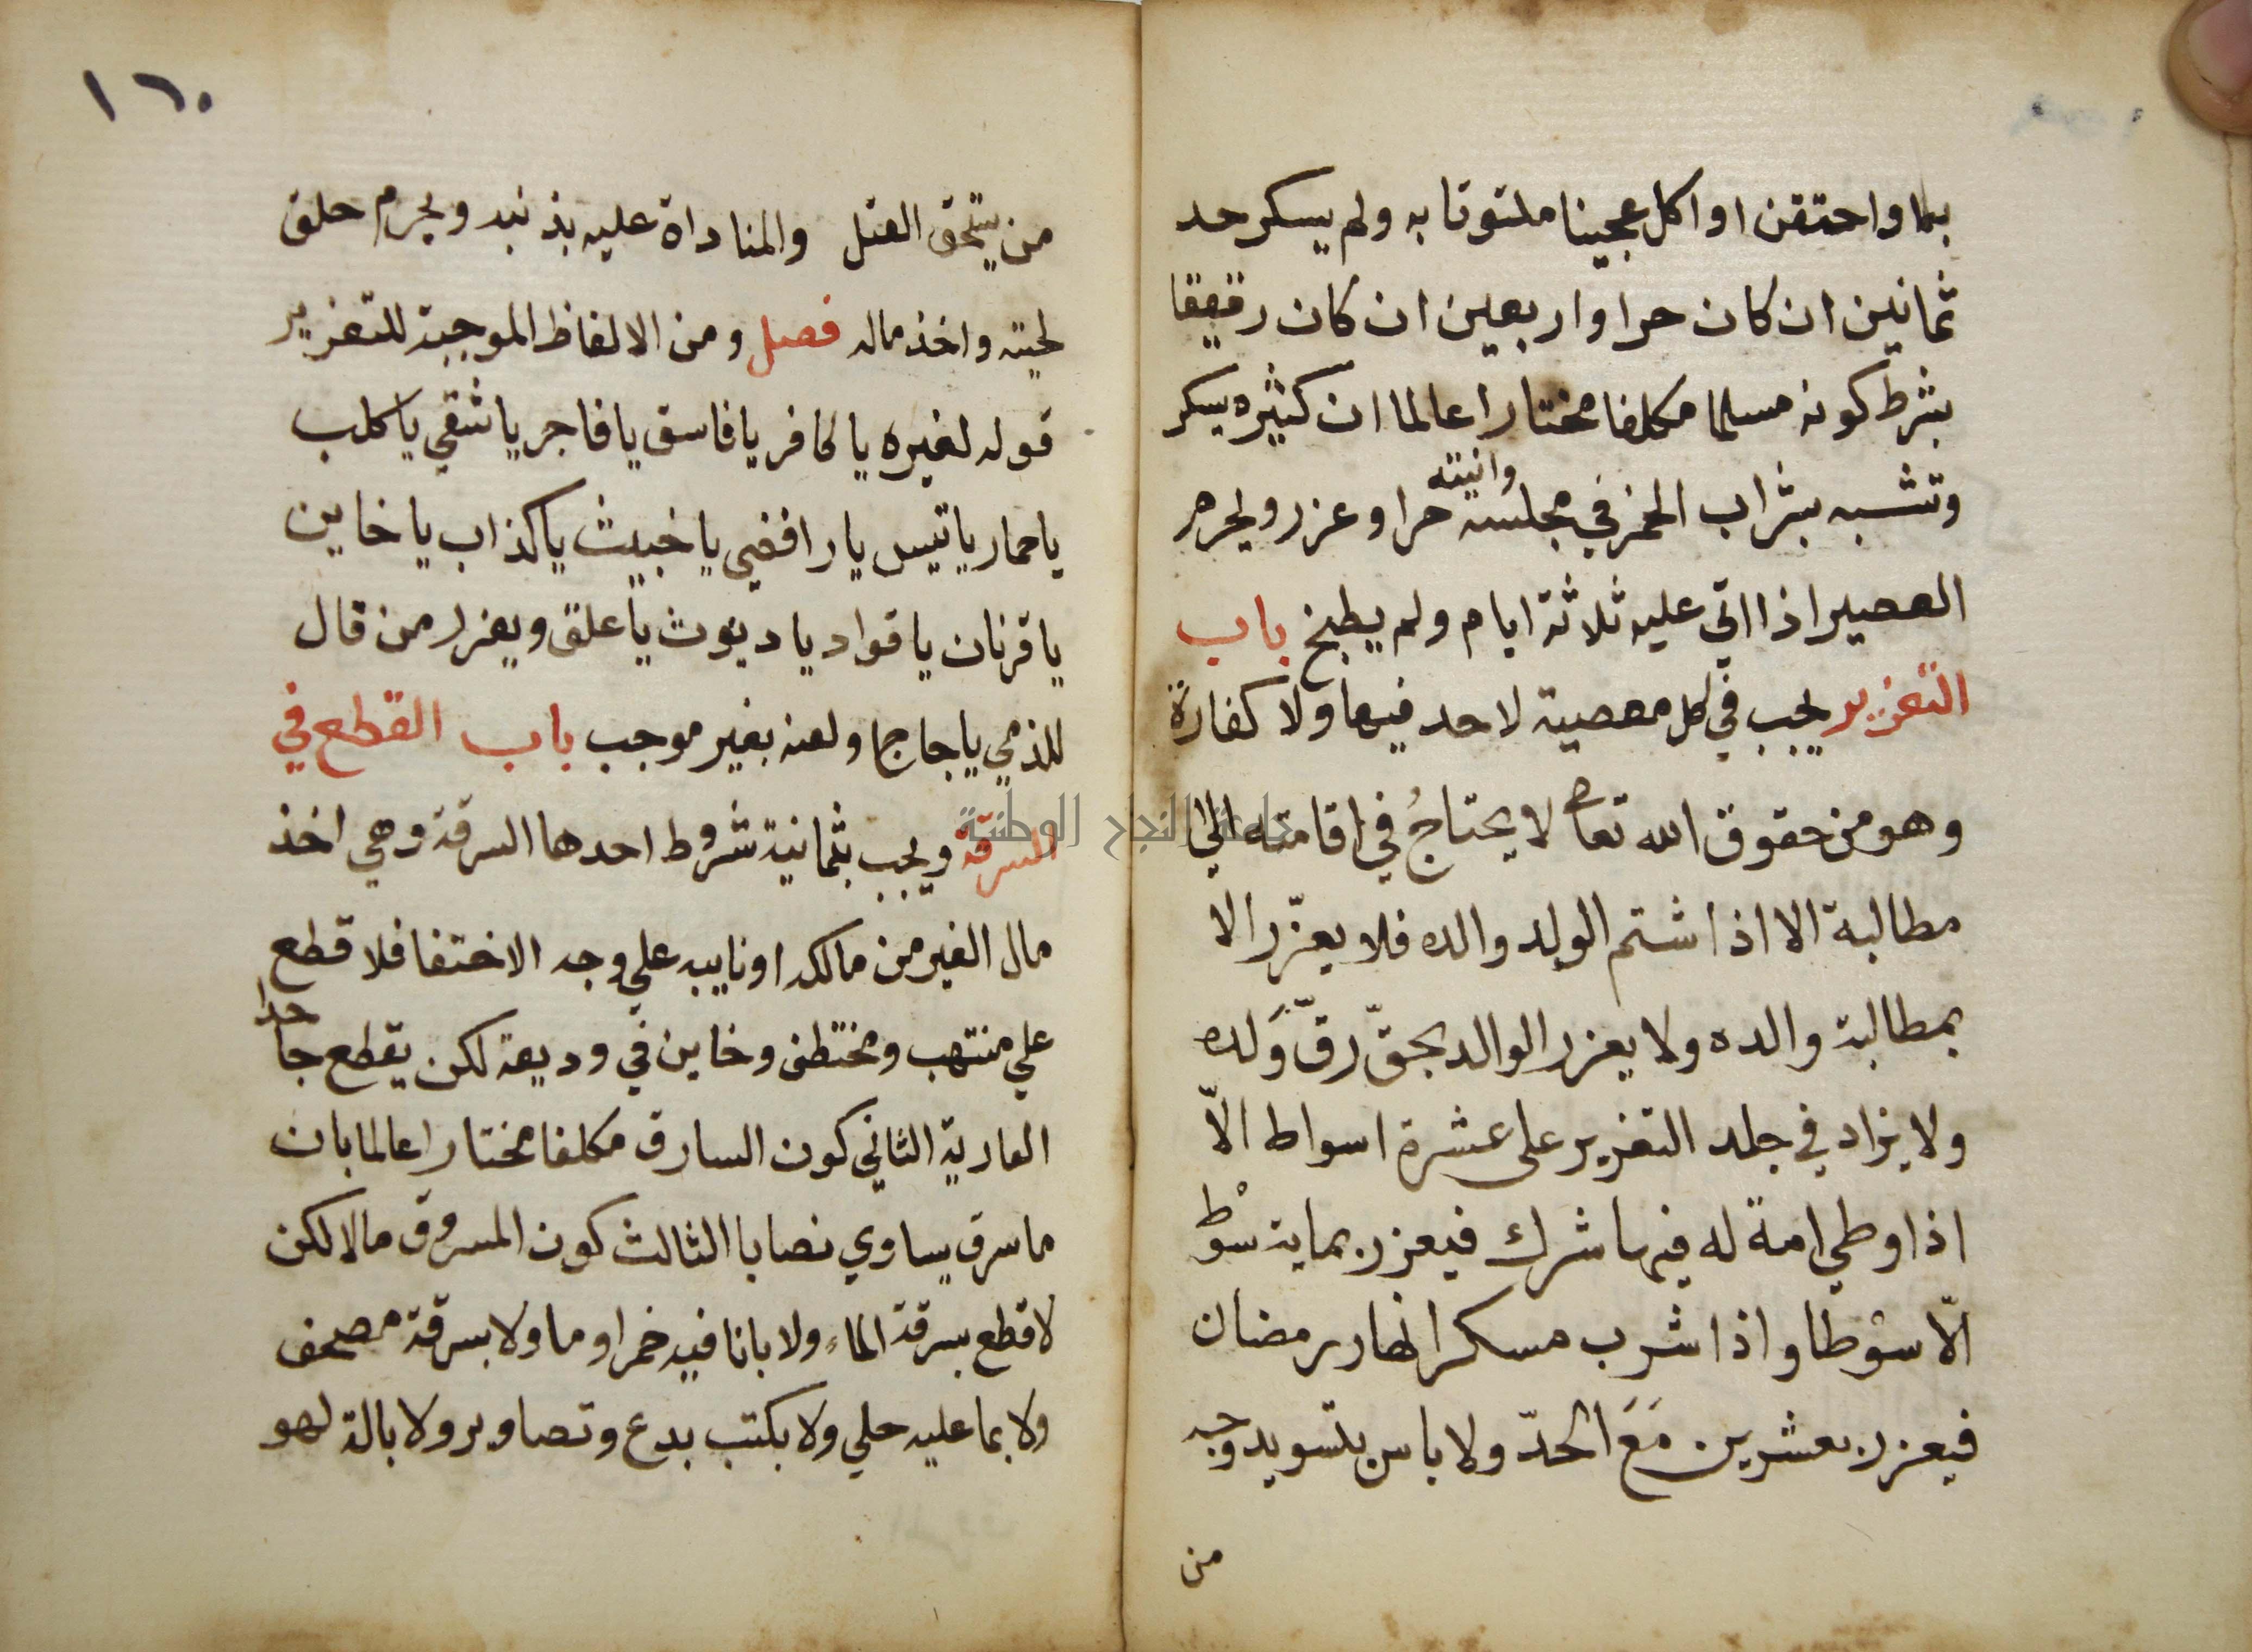 بها واحتقن او اكل عجينا ملتوتا به ولم يسكر حد
ثمانين ان كان حرا واربعين ان كان رقيقا
بشرط كونه مسلما مكلفا مختارا عالما ان كثيره يسكر
وانيته
وتشبه بشراب الخمر في مجلسه حرا وعزر ويحرم
العصير اذا اتى عليه ثلاثة ايام ولم يطبخ باب
التعزير يجب في كل معصية لا حد فيها ولا كفارة
وهو من حقوق الله تعا لا يحتاجُ في اقامته الي
مطالبة الا اذا شتم الولد والده فلا يعزّر الا
بمطالبة والده ولا يعزر الوالد بحقّ رقّ وَلده
ولا يزاد في جلد التعزير على عشرة اسواط الاّ
اذا وطي امة له فيها شرك فيعزر بماية سوْط
الاّ سوْطا واذا شرب مسكرا نهار رمضان
فيعزر بعشرين مَعَ الحدّ ولا باس بتسويد وجه
من
١٦٠
من يستحق القتل والمناداة عليه بذنبه ويحرم حلق
لحيته واخذ ماله فصل ومن الالفاظ الموجبة للتعزير
قوله لغيره يا كافر يا فاسق يا فاجر يا شقي يا كلب
يا حمار يا تيس يا رافضي يا خبيث يا كذاب يا خاين
يا قرنان يا قواد يا ديوث يا علق ويعزر من قال
للذمي يا حاج او لعنه بغير موجب باب القطع في
السرقة ويجب بثمانية شروط احدها السرقة وهي اخذ
مال الغير من مالكه او نايبه علي وجه الاختفا فلا قطع
علي منتهب ومختطف وخاين في وديعة لكن يقطع جاحد
العارية الثاني كون السارق مكلفا مختارا عالما بان
ما سرق يساوي نصابا الثالث كون المسروق مالا لكن
لا قطع بسرقة الماء ولا بانا فيه خمر او ما ولا بسرقة مصحف
ولا بما عليه حلي ولا بكتب بدع وتصاوير ولا بالة لهو
جامعة النجاح الوطنية